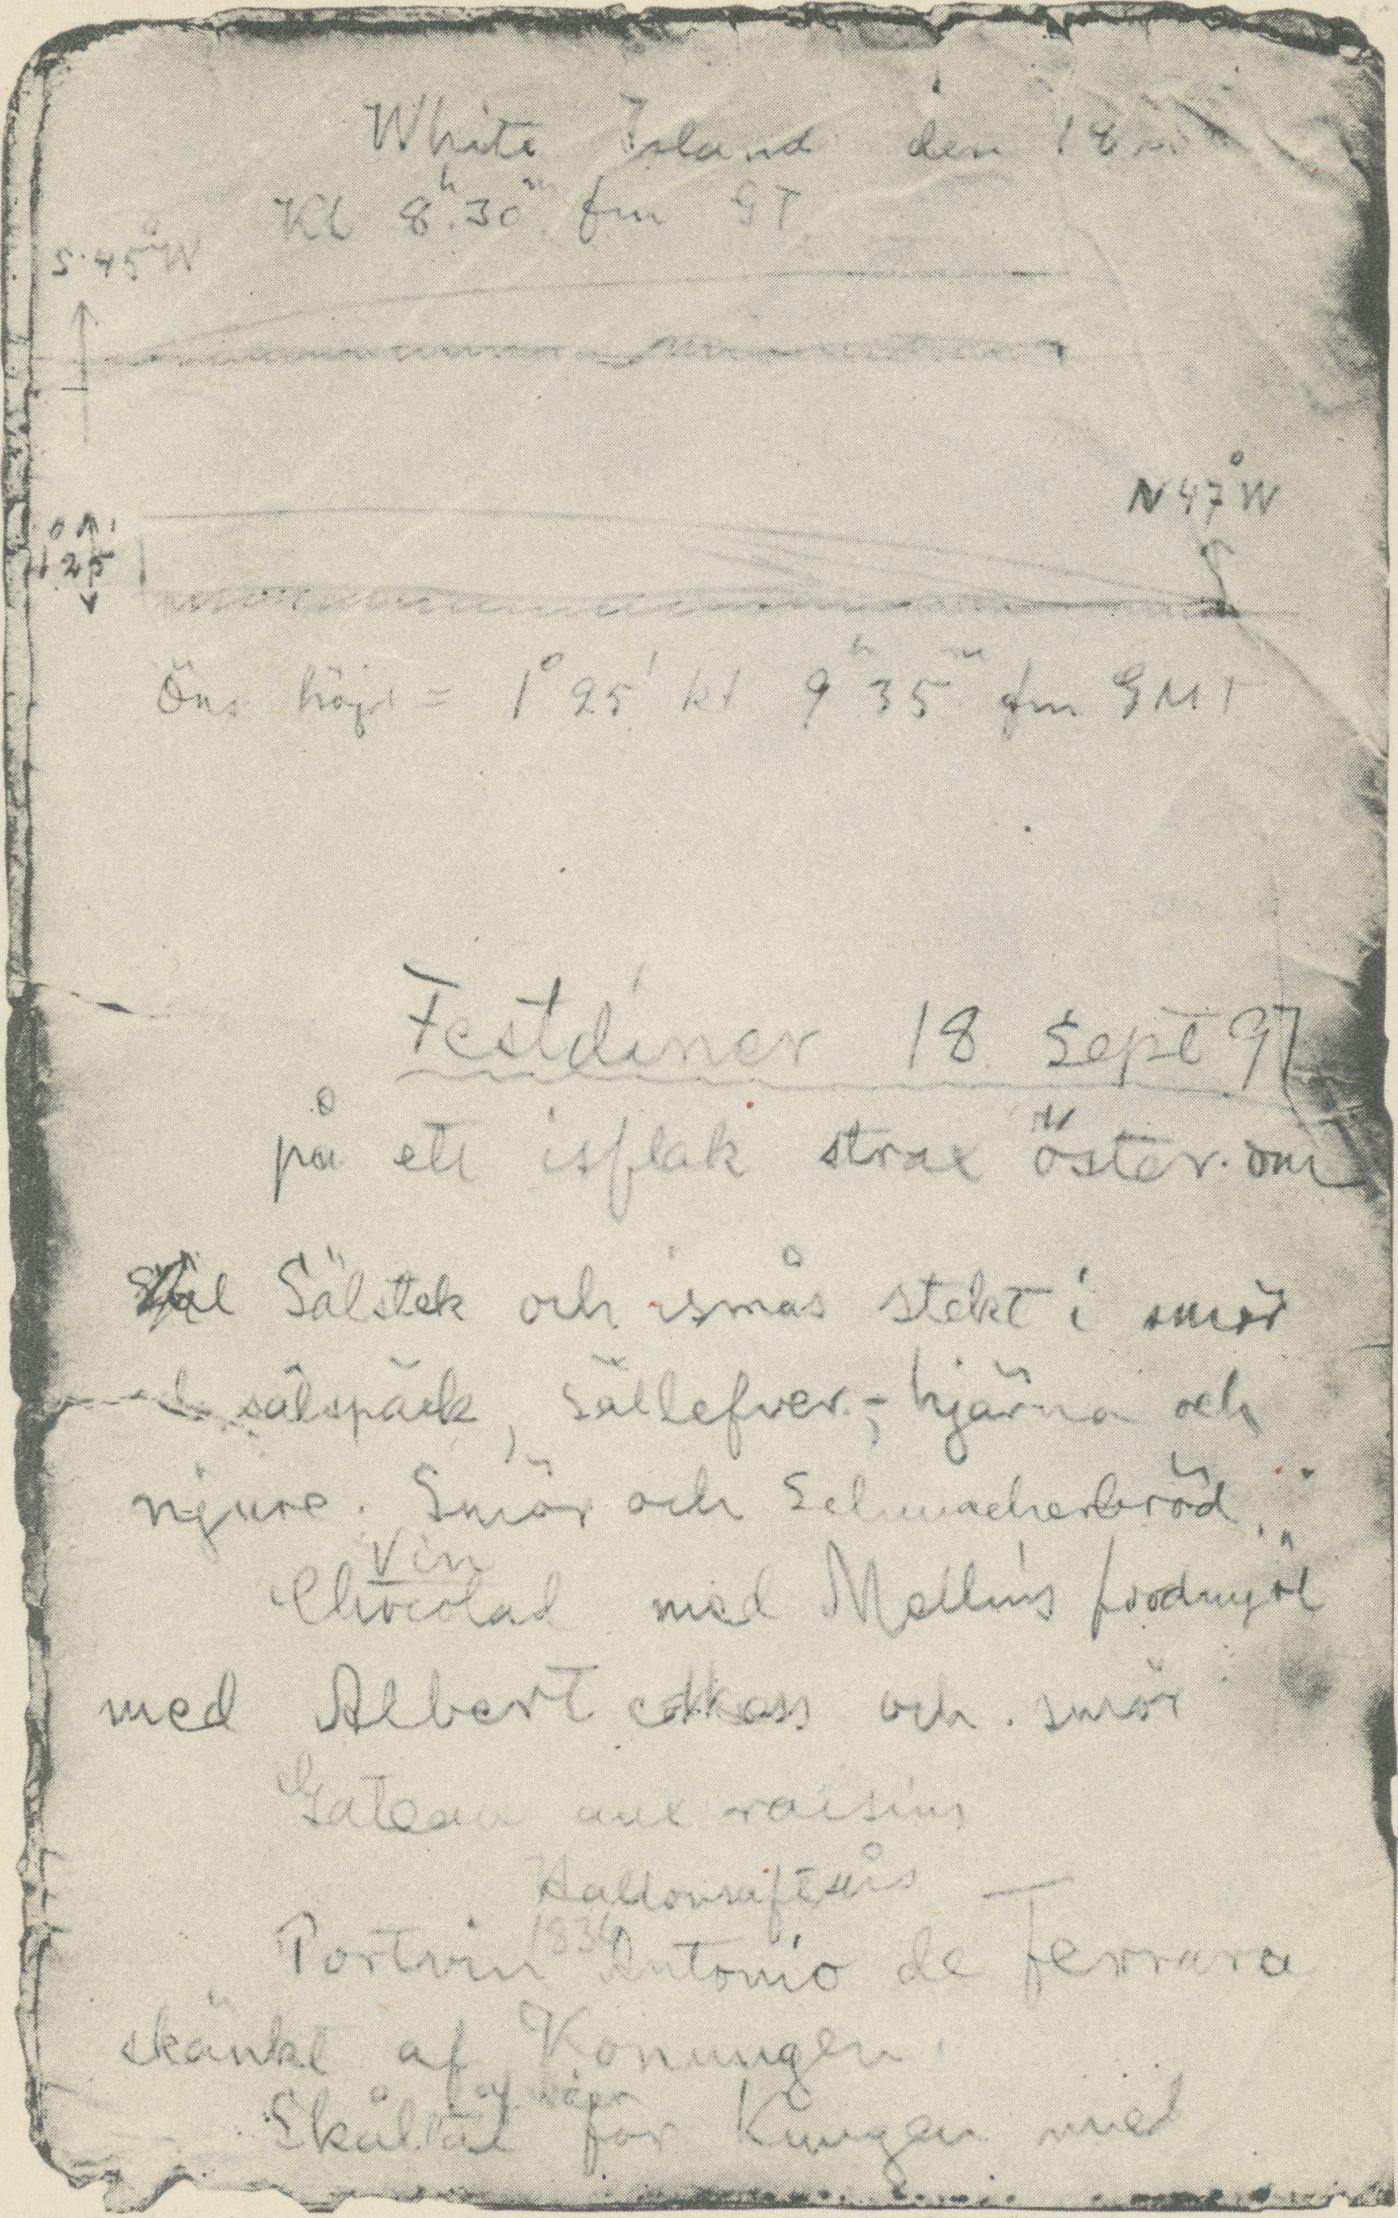 White Island den 18
Kl 8h.30m fm GT
S.45°W
N47°W
1°25'
Öns höjd = 1°25' kl 9h35m fm GMT
Festdiner 18 Sept 97
på ett isflak strax öster om
Sälstek och ismås stekt i smör
sälspäck, sällefver-, hjärna och
njure. Smör och Schumacherbröd.
Vin
Chocolad med Mellins foodmjöl
med Albert och smör
Gateau aux raisins
Hallonsaftsås
Portvin 1834 Antonio de Ferrara
skänkt af Konungen.
Skåltal af för Kungen med